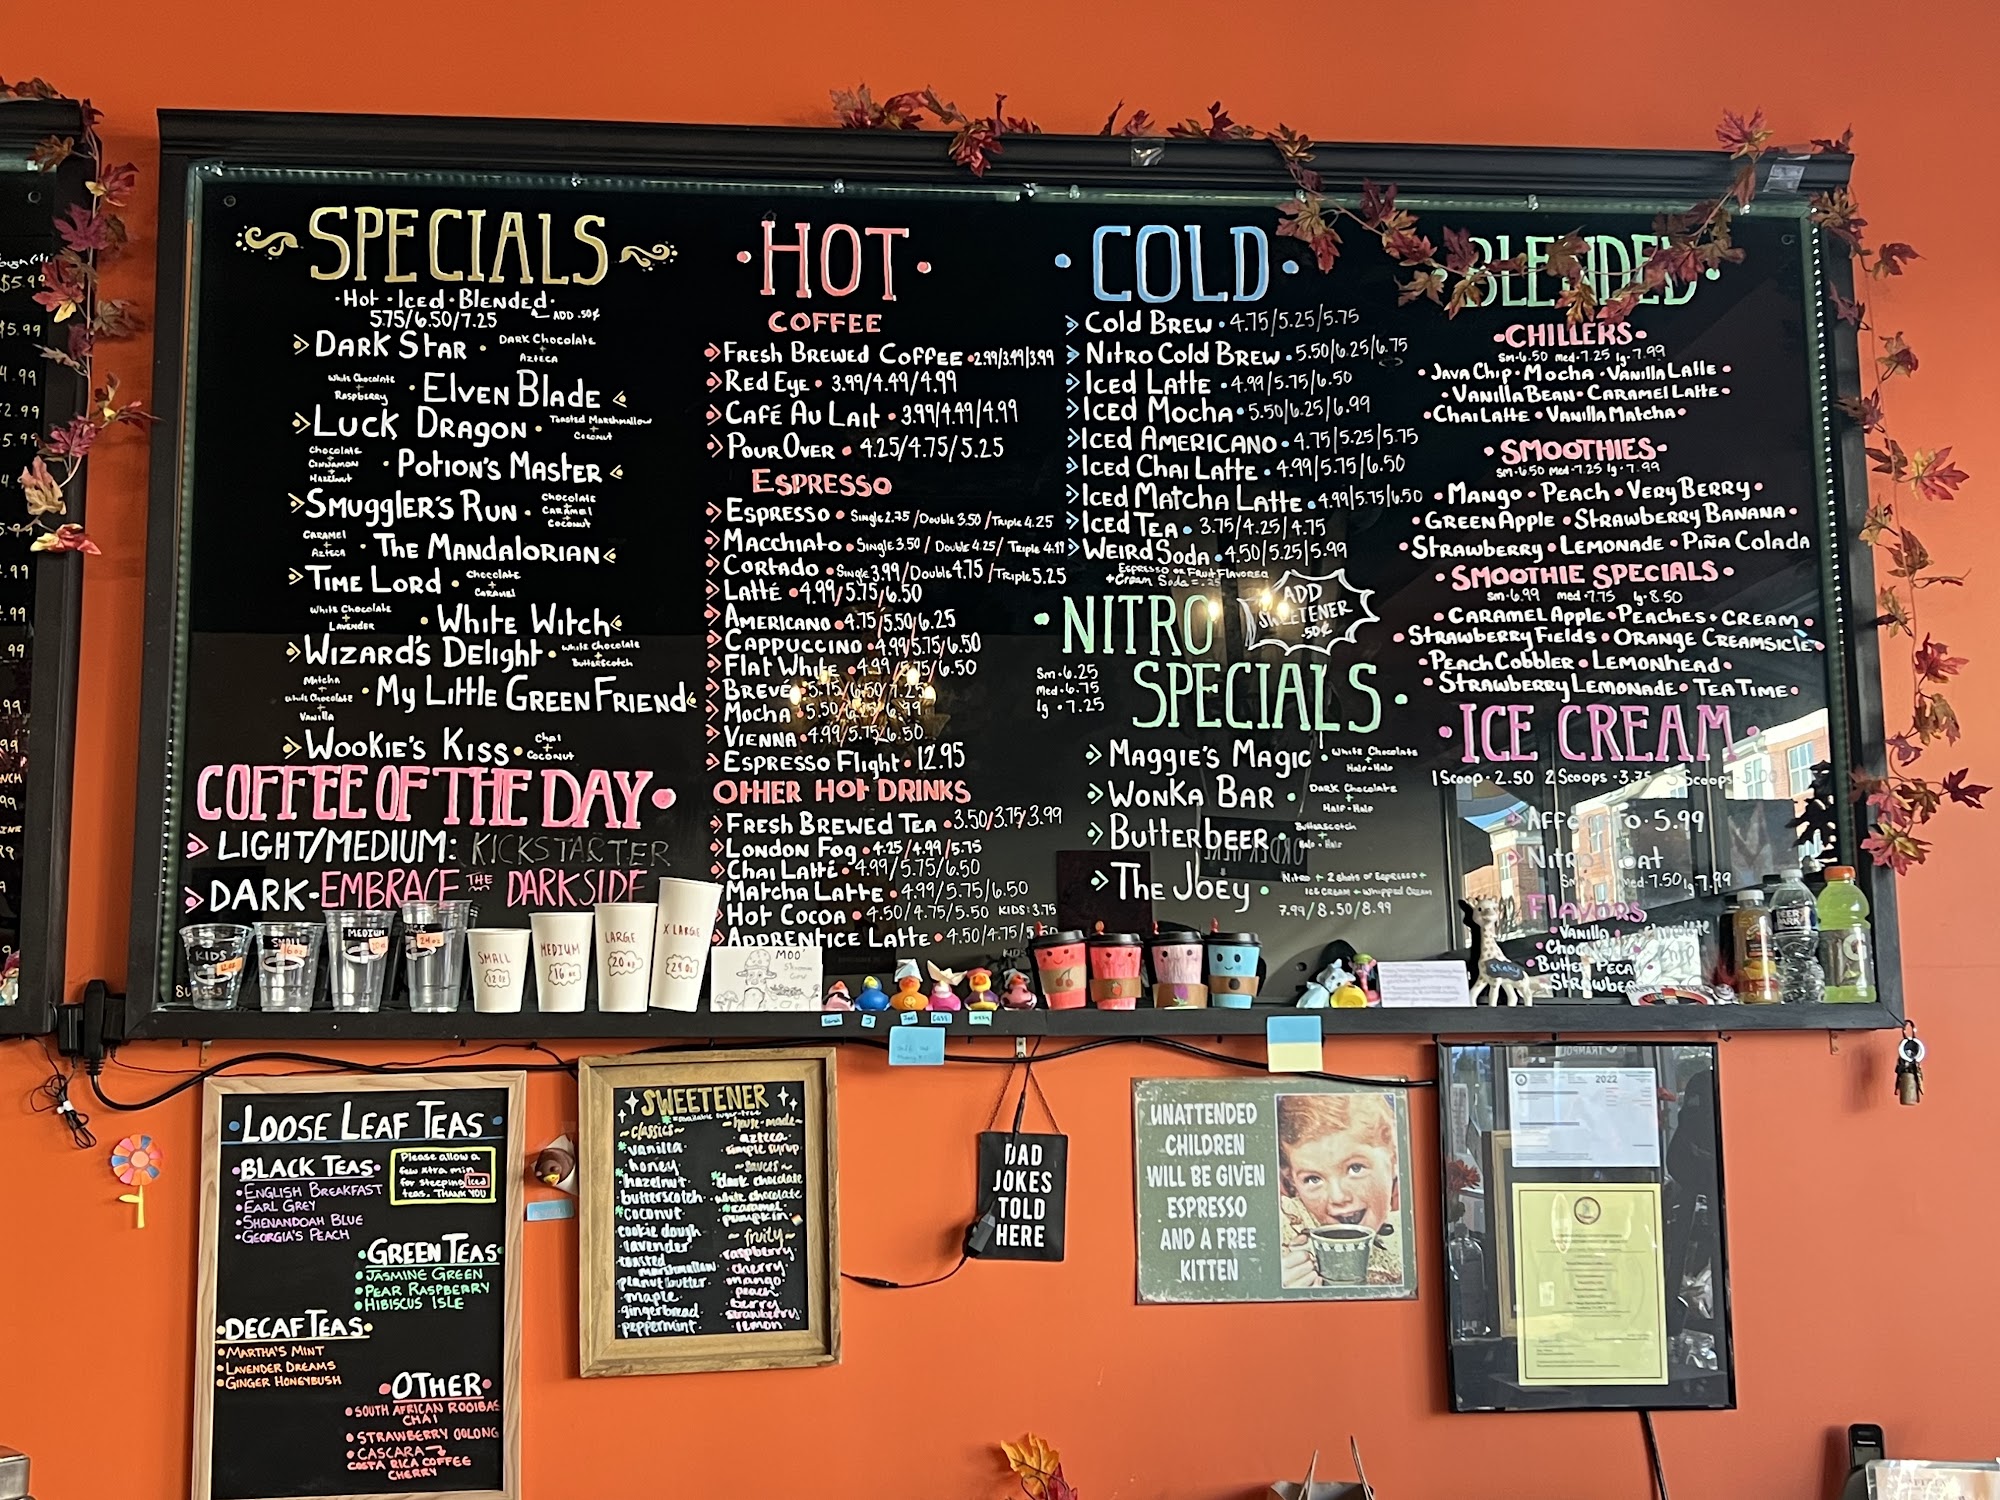 SPECIALS
·Hot·Iced·Blended·
5.75/6.50/7.25
ADD .50¢
DARK STAR · DARK CHOCOLATE + AZTECA
WHITE CHOCOLATE RASPBERRY · ELVEN BLADE
LUCK DRAGON · TOASTED MARSHMALLOW + COCONUT
CHOCOLATE CINNAMON + HAZELNUT · POTION'S MASTER
SMUGGLER'S RUN · CHOCOLATE + CARAMEL + COCONUT
CARAMEL + AZTECA · THE MANDALORIAN
TIME LORD · CHOCOLATE + CARAMEL
WHITE CHOCOLATE + LAVENDER · WHITE WITCH
WIZARD'S DELIGHT · WHITE CHOCOLATE + BUTTERSCOTCH
MATCHA WHITE CHOCOLATE + VANILLA · MY LITTLE GREEN FRIEND
WOOKIE'S KISS · CHAI + COCONUT
COFFEE OF THE DAY
LIGHT/MEDIUM: KICKSTARTER
DARK-EMBRACE THE DARKSIDE
·HOT·
COFFEE
FRESH BREWED COFFEE · 2.99/3.49/3.99
RED EYE · 3.99/4.49/4.99
CAFÉ AU LAIT · 3.99/4.49/4.99
POUR OVER · 4.25/4.75/5.25
ESPRESSO
ESPRESSO · Single 2.75 / Double 3.50 / Triple 4.25
MACCHIATO · Single 3.50 / Double 4.25 / Triple 4.99
CORTADO · Single 3.99 / Double 4.75 / Triple 5.25
LATTÉ · 4.99/5.75/6.50
AMERICANO · 4.75/5.50/6.25
CAPPUCCINO · 4.99/5.75/6.50
FLAT WHITE · 4.99/5.75/6.50
BREVÉ · 5.75/6.50/7.25
MOCHA · 5.50/6.25/6.99
VIENNA · 4.99/5.75/6.50
ESPRESSO FLIGHT · 12.95
OTHER HOT DRINKS
FRESH BREWED TEA · 3.50/3.75/3.99
LONDON FOG · 4.25/4.99/5.75
CHAI LATTÉ · 4.99/5.75/6.50
MATCHA LATTE · 4.99/5.75/6.50
HOT COCOA · 4.50/4.75/5.50 KIDS: 3.75
APPRENTICE LATTE · 4.50/4.75/5.50
·COLD·
COLD BREW · 4.75/5.25/5.75
NITRO COLD BREW · 5.50/6.25/6.75
ICED LATTE · 4.99/5.75/6.50
ICED MOCHA · 5.50/6.25/6.99
ICED AMERICANO · 4.75/5.25/5.75
ICED CHAI LATTE · 4.99/5.75/6.50
ICED MATCHA LATTE · 4.99/5.75/6.50
ICED TEA · 3.75/4.25/4.75
WEIRD SODA · 4.50/5.25/5.99
ESPRESSO OR FRUIT FLAVORED
+ Cream Soda = .25
ADD SWEETENER .50¢
·NITRO SPECIALS·
Sm · 6.25
Med · 6.75
lg · 7.25
MAGGIE'S MAGIC · WHITE CHOCOLATE + HALF + HALF
WONKA BAR · DARK CHOCOLATE + HALF + HALF
BUTTERBEER · BUTTERSCOTCH + HALF + HALF
THE JOEY · NITRO + 2 SHOTS OF ESPRESSO + ICE CREAM + WHIPPED CREAM
7.99/8.50/8.99
BLENDED
·CHILLERS·
Sm·6.50 med·7.25 lg·7.99
·JAVA CHIP·MOCHA·VANILLA LATTE·
·VANILLA BEAN·CARAMEL LATTE·
·CHAI LATTE·VANILLA MATCHA·
·SMOOTHIES·
Sm·6.50 Med·7.25 lg·7.99
·MANGO·PEACH·VERY BERRY·
·GREEN APPLE·STRAWBERRY BANANA·
·STRAWBERRY·LEMONADE·PIÑA COLADA
·SMOOTHIE SPECIALS·
Sm·6.99 med·7.75 lg·8.50
·CARAMEL APPLE·PEACHES + CREAM·
·STRAWBERRY FIELDS·ORANGE CREAMSICLE·
·PEACH COBBLER·LEMONHEAD·
·STRAWBERRY LEMONADE·TEA TIME·
·ICE CREAM·
1 Scoop · 2.50 2 Scoops · 3.75 3 Scoops
5.99
NITRO
Med·7.50 lg·7.99
FLAVORS
·Vanilla
·Butter Pecan
·Strawberry
KIDS
SMALL
MEDIUM
24 oz
SMALL 12 oz
MEDIUM 16 oz
LARGE 20 oz
X LARGE 24 oz
MOO
LOOSE LEAF TEAS
·BLACK TEAS·
·ENGLISH BREAKFAST
·EARL GREY
·SHENANDOAH BLUE
·GEORGIA'S PEACH
Please allow a
few xtra min
for steeping iced
teas. THANK YOU
·GREEN TEAS·
·JASMINE GREEN
·PEAR RASPBERRY
·HIBISCUS ISLE
·DECAF TEAS·
·MARTHA'S MINT
·LAVENDER DREAMS
·GINGER HONEYBUSH
·OTHER·
·SOUTH AFRICAN ROOIBAS
CHAI
·STRAWBERRY OOLONG
·CASCARA
COSTA RICA COFFEE
CHERRY
SWEETENER
*available sugar-free
~classics~
*vanilla
honey
*hazelnut
butterscotch
*coconut
cookie dough
lavender
toasted
marshmallow
peanut butter
maple
gingerbread
peppermint
~house-made~
azteca
simple syrup
~sauces~
*dark chocolate
white chocolate
*caramel
pumpkin
~fruity~
raspberry
cherry
mango
peach
berry
strawberry
lemon
DAD
JOKES
TOLD
HERE
UNATTENDED
CHILDREN
WILL BE GIVEN
ESPRESSO
AND A FREE
KITTEN
2022